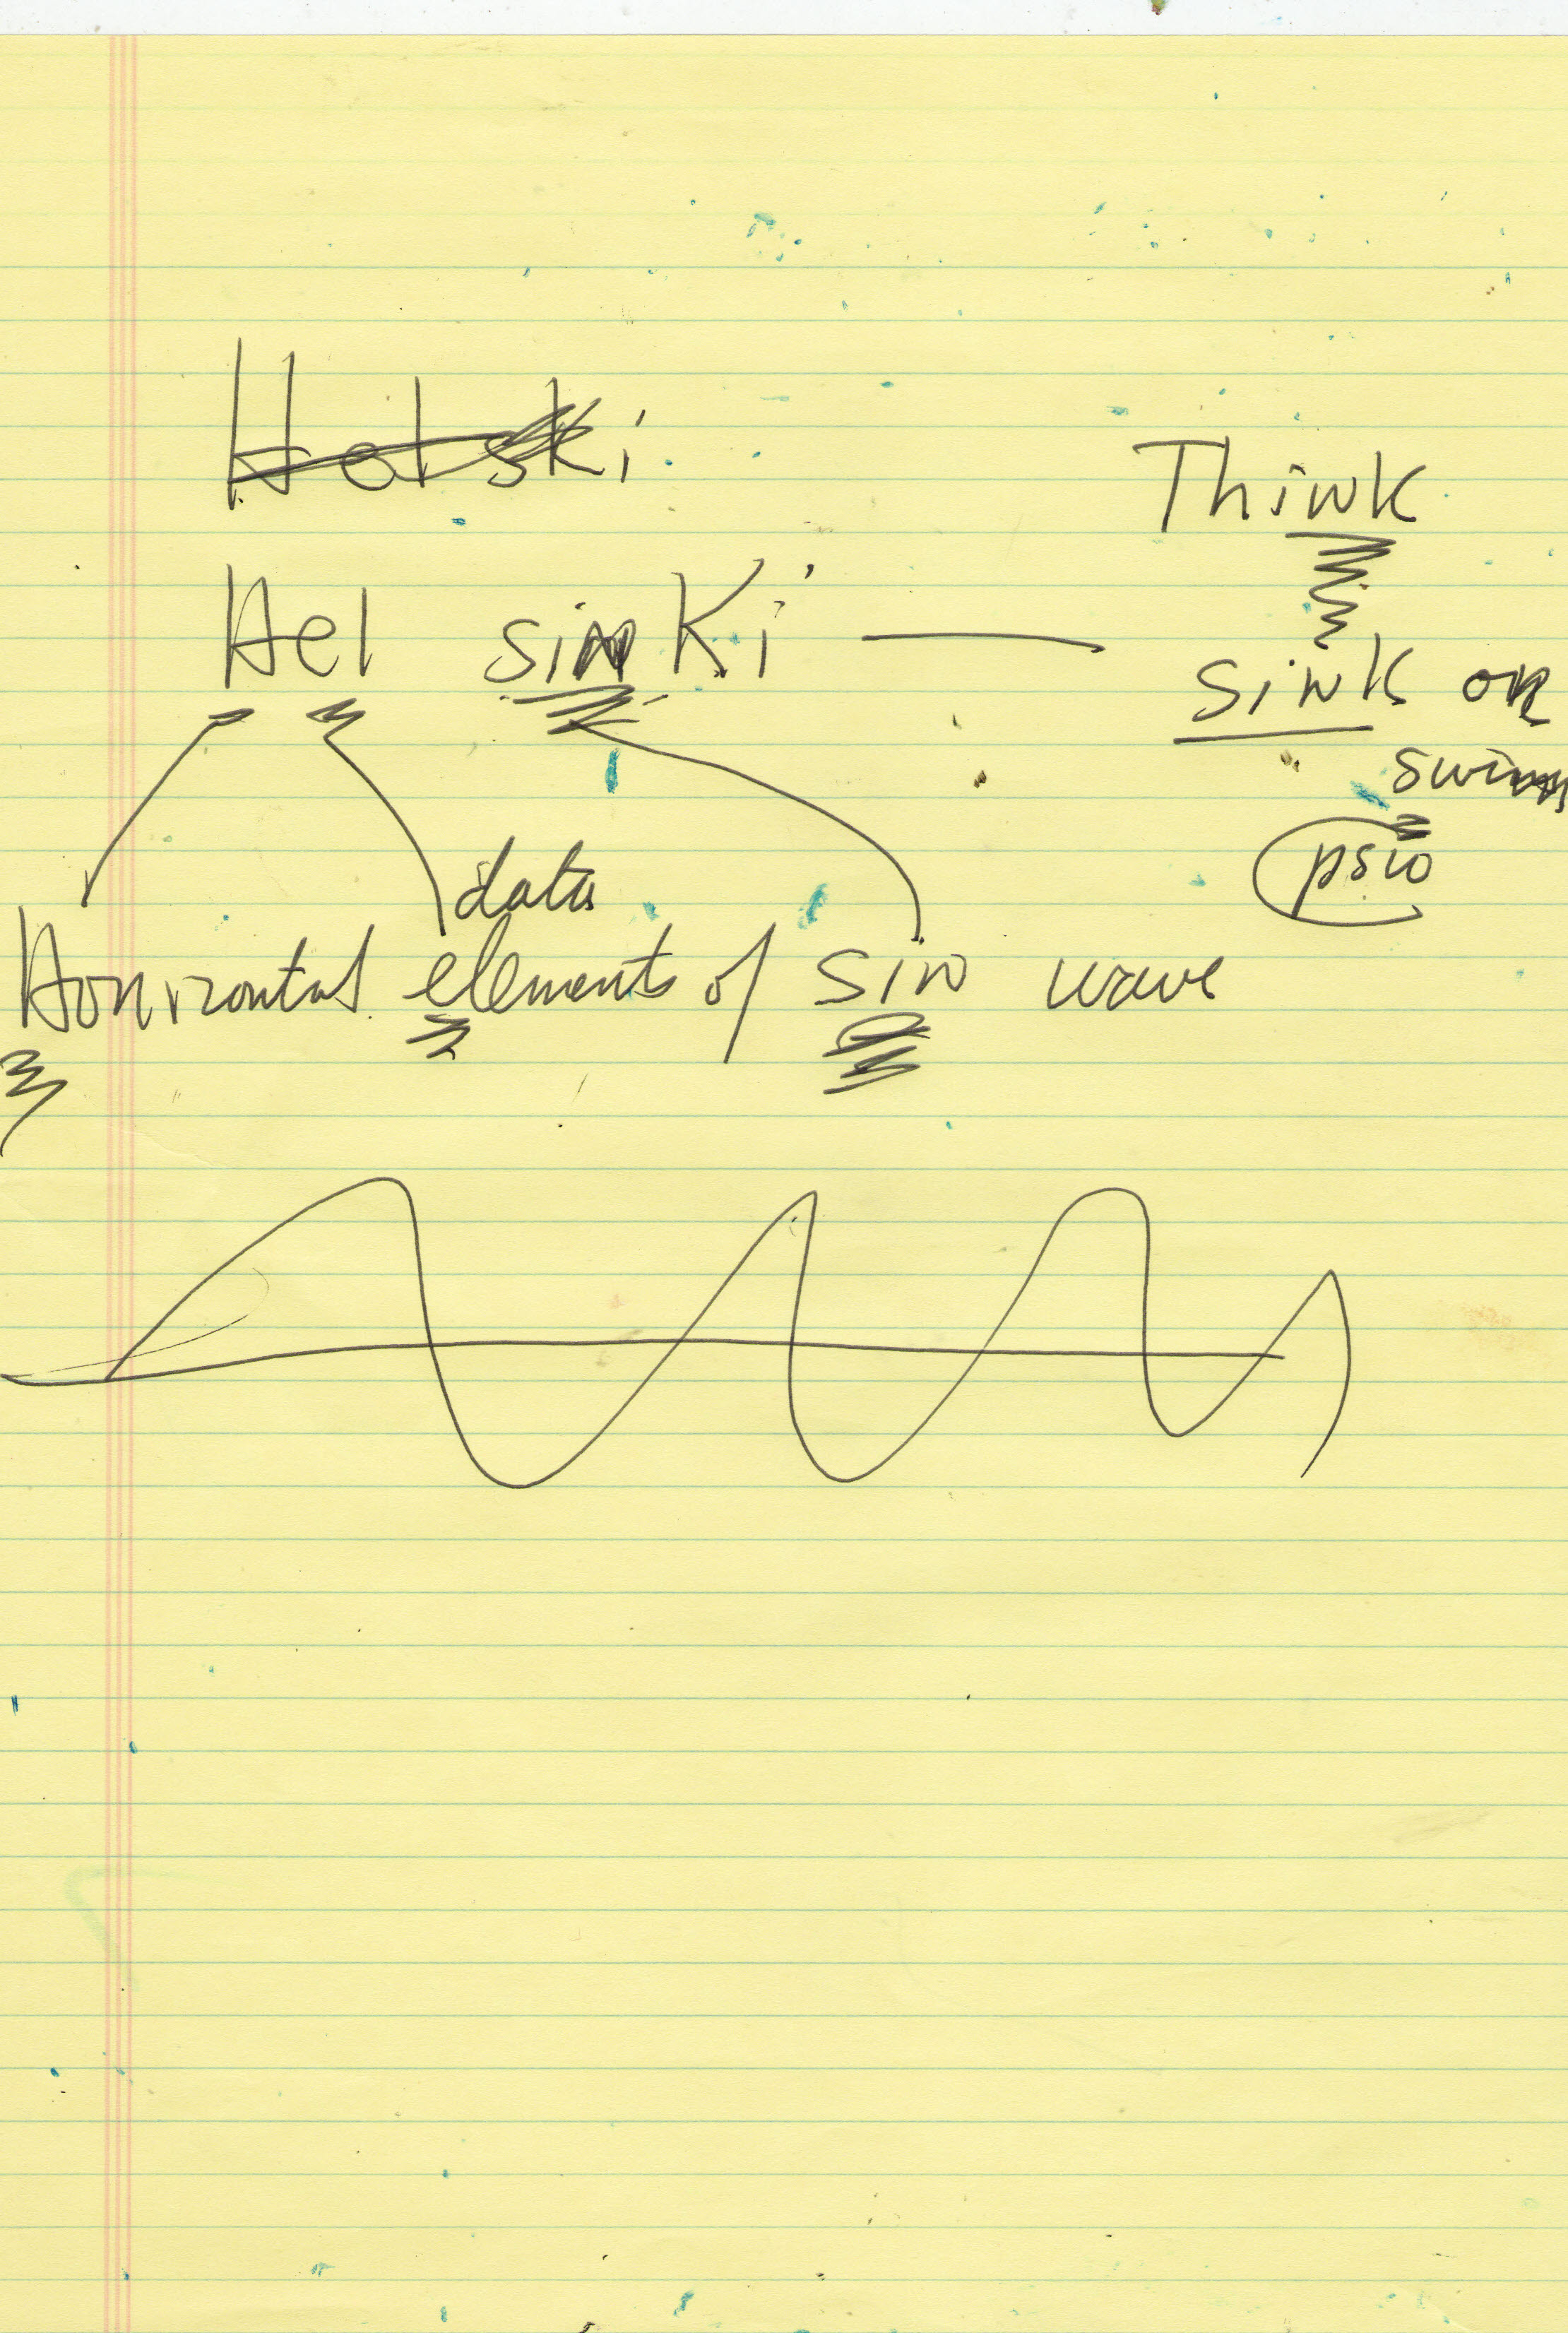 Helski
Think
Hel sinKi
sink or
swim
data
Horizontal elements of sin wave